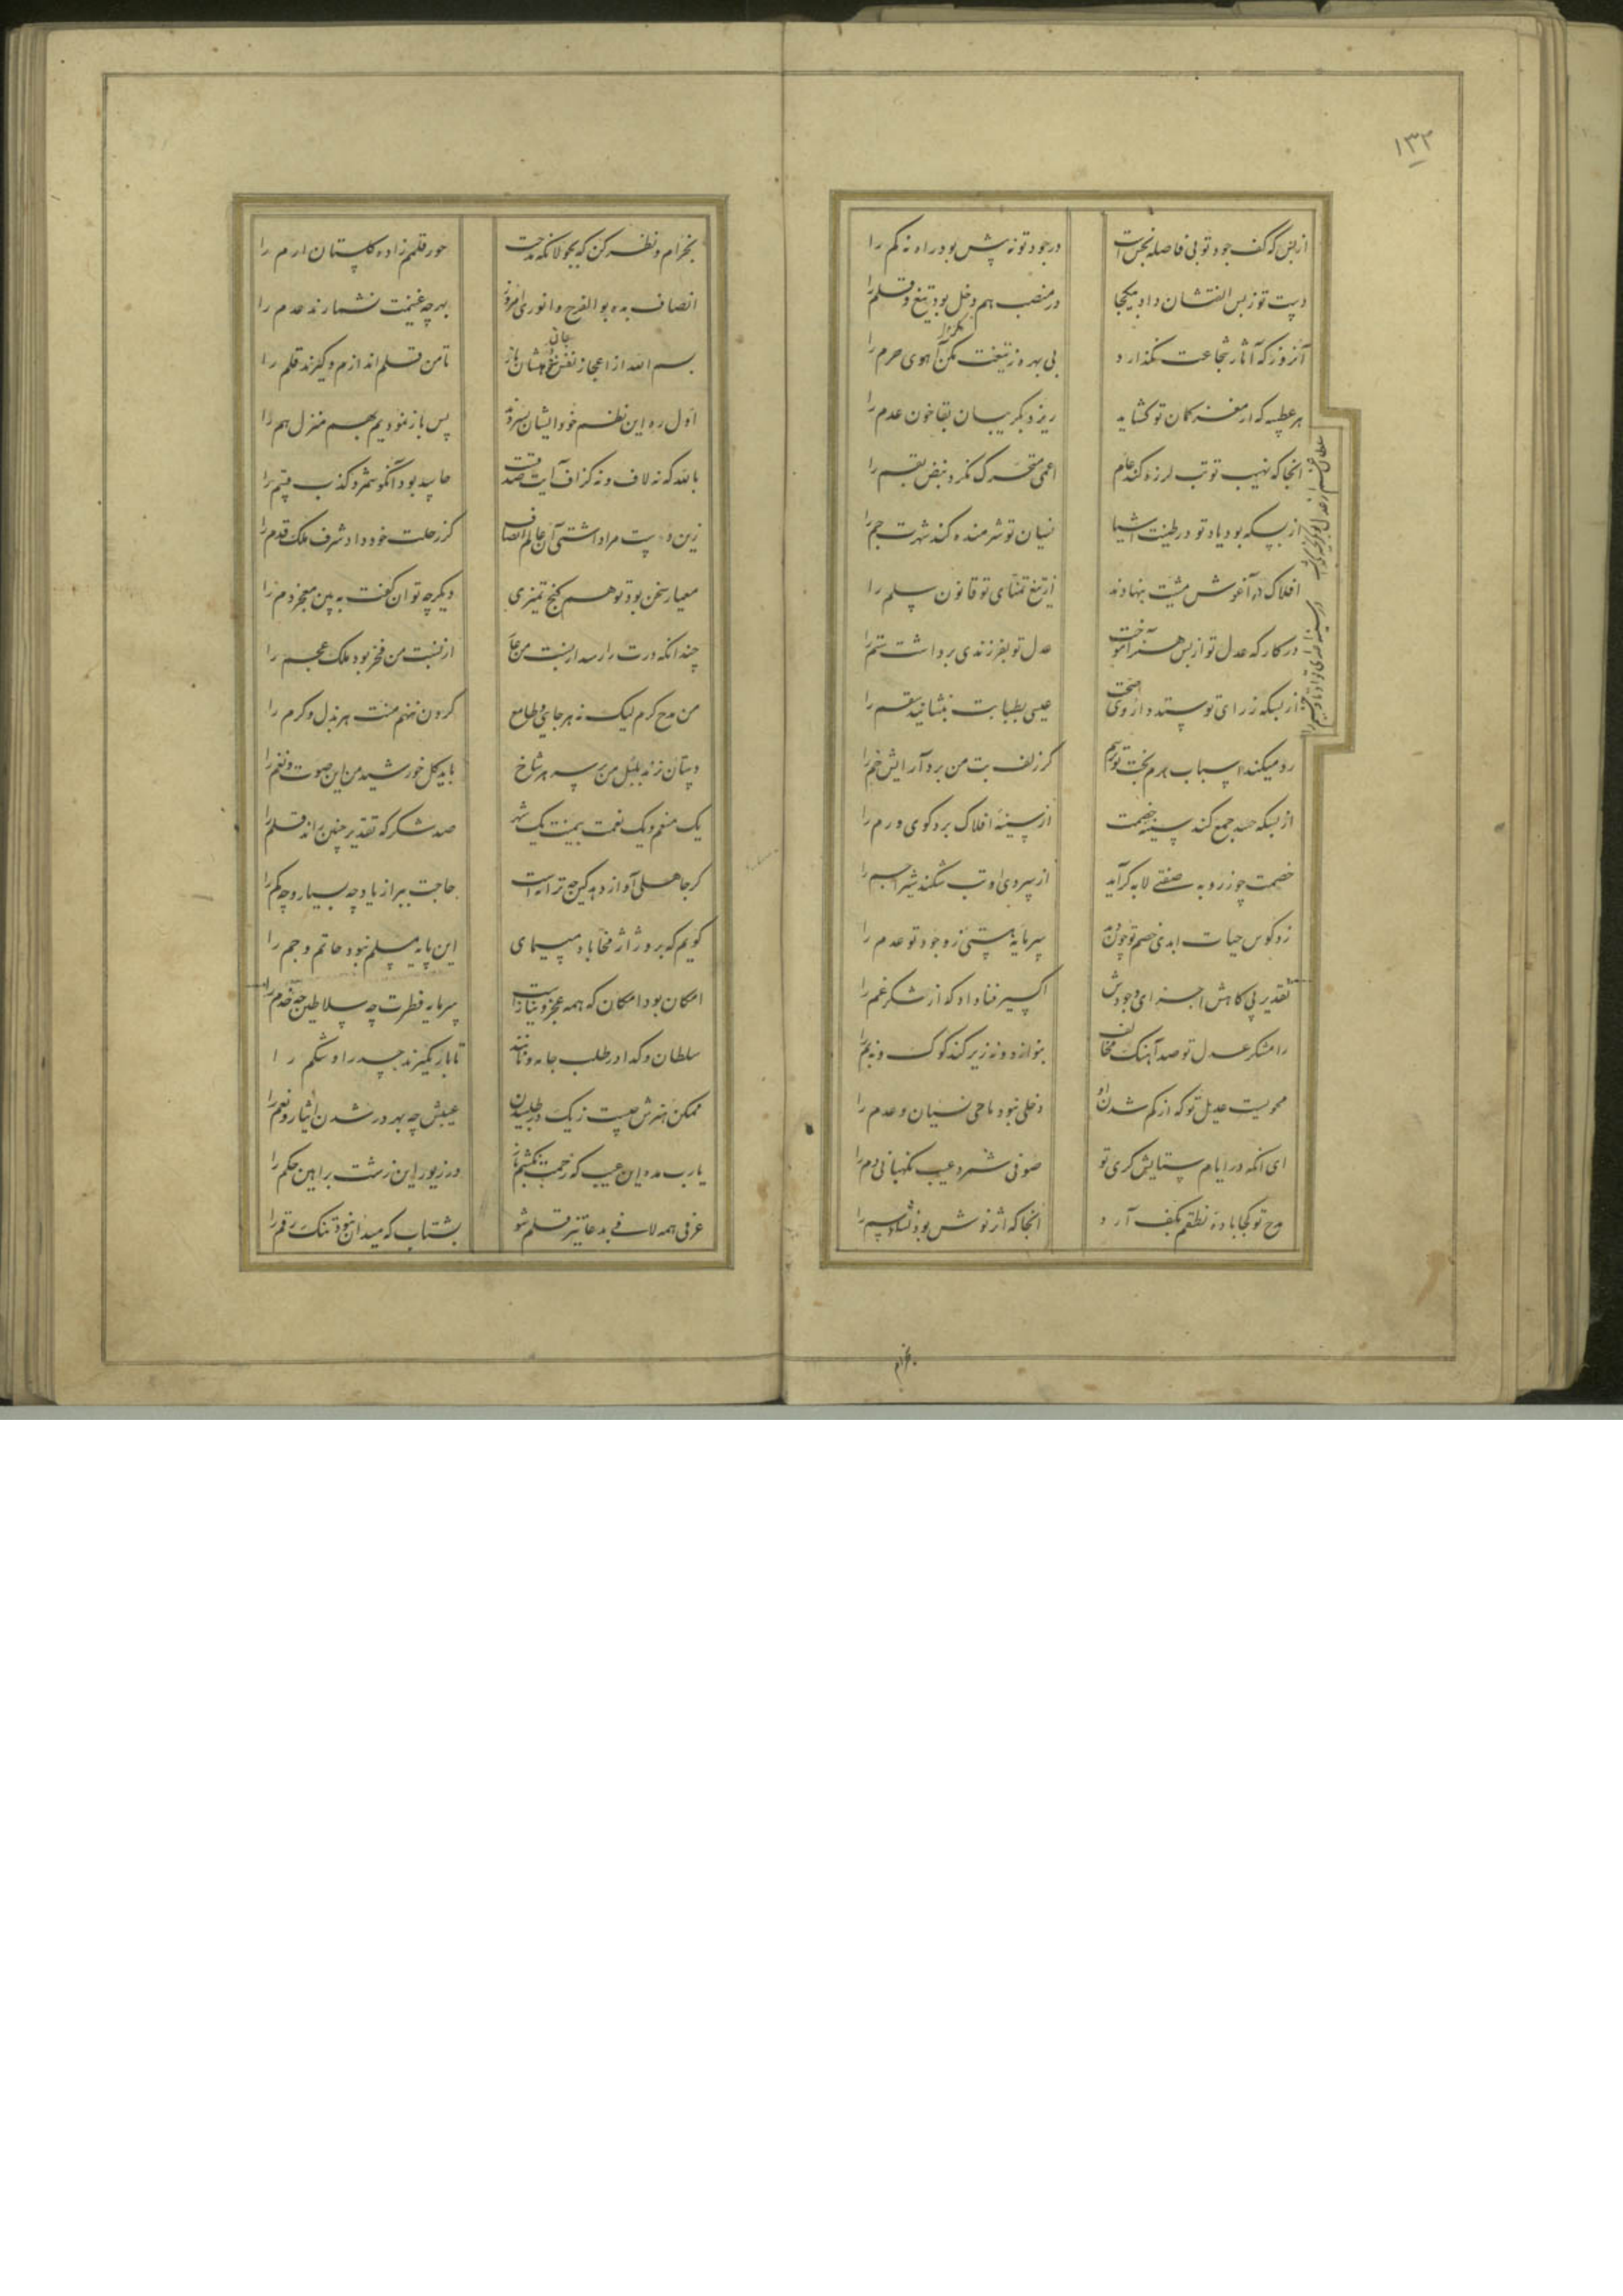 ۱۳۲
از بس که کف جود تو بی فاصله بخش است
در جود تو نه پیش بود راه نه کم را
دست تو ز بس الفتشان داد بیکجا
در منصب هم دخل بود تیغ و قلم را
آنروز که آثار شجاعت نگذارد
بی بهره ز تیغت مگر آهوی حرم را
هر عطسه که از مغز کمان تو کشاید
ریزد بگریبان بقا خون عدم را
انجا که نهیب تو تب لرزه کند عام
اعمی متحرک نگرد نبض بقم را
از بسکه بود یاد تو در طینت اشیا
نسیان تو شرمنده کند شهرت جم را
افلاک در آغوش مشیت بنهادند
از تیغ تمنای تو قانون سلم را
در کار که عدل تو از بس هنر آموخت
عدل تو بفرزندی برداشت ستم را
از بسکه ز رای تو ستد داروی صحت
عیسی بطبابت بنشانید سقم را
رد میکند اسباب هرم بخت تو ترسم
کز زلف بت من برد آرایش خم را
از بسکه حسد جمع کند سینه خصمت
از سینهٔ افلاک برد کوی ورم را
خصمت چو ز روبه صفتی لابه گر آید
از پیروی او تب شکند شیر اجم را
زد کوس حیات ابدی خصم تو چون دید
سرمایهٔ هستی ز وجود تو عدم را
تقدیر پی کاهش اجزای وجودش
اکسیر فنا داد که از شکر غم را
رامشگر عدل تو صد آهنگ مخالف
بنوازد و نه زیر کند کوک و نه بم را
محویت عدیل تو که از کم شدن او
دخلی نبود ماحی نسیان و عدم را
ای انکه در ایام ستایش گری تو
صوفی شمرد عیب نگهبانی دم را
مدح تو کجا بادهٔ نطقم بکف آرد
انجا که اثر نوش بود شاد سم را
بخرام
بخرام و نظر کن که بجولانگه مدحت
حور قلمم زاده گلستان ارم را
انصاف بده بوالفرج و انوری امروز
بهر چه غنیمت نشمارند عدم را
بسم الله از اعجاز نفس جان دهشان باز
تا من قلم اندازم و گیرند قلم را
اول ره این نظم خود ایشان بسپردند
پس باز نمودیم بهم منزل هم را
بالله که نه لاف و نه گزاف آیت صدقست
حاسد بود آنکو شمرد کذب قسم را
معیار سخن بود تو هم گنج تمیزی
دیگر چه توان گفت به بین معجز دم را
از نسبت من فخر بود ملک عجم را
من مدح گرم لیک نه هر جایی و طامع
گردن ننهم منت هر بذل و کرم را
دستان نزند بلبل من بر سر هر شاخ
باید گل خورشید من این صوت و نغم را
یک منعم و یک نعمت یک منت یک شکر
صد شکر که تقدیر چنین راند قلم را
حاجت ببر از یاد چه بسیار و چه کم را
این پایه مسلم نبود حاتم و جم را
امکان بود امکان که همه عجز و نیاز است
سرمایه فطرت چه سلاطین چه خدم را
سلطان و گدا در طلب جامه و نانند
ممکن هنرش چیست ز یک در طلبیدن
عیبش چه بهر در شدن ایثار و نعم را
ده زیور این زشت براهین حکم را
عرفی همه لافی بدعا تیز قلم شو
بشتاب که میدان نبود تنگ رقم را